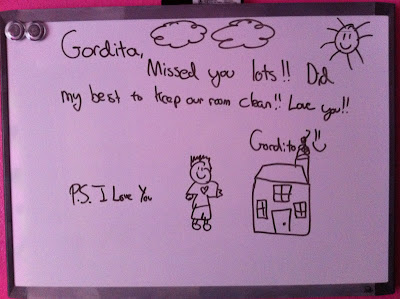 Gordita,
Missed you lots!! Did
my best to keep our room clean!! Love you!!
Gordito
P.S. I Love You